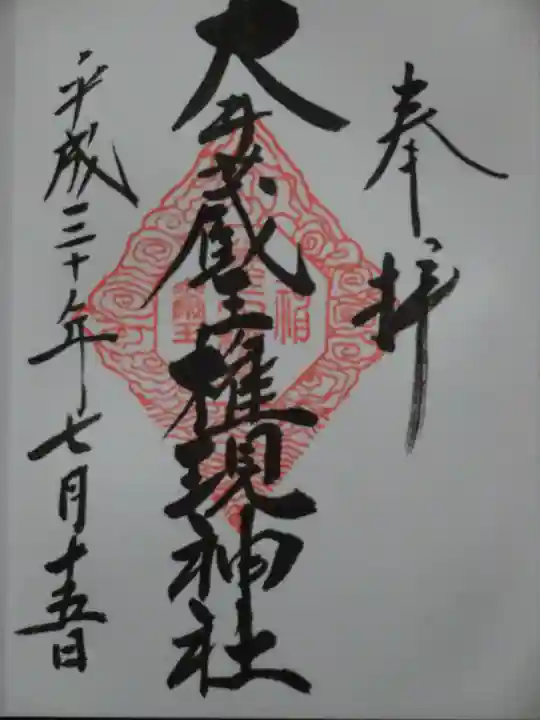 奉拝
大井蔵王権現神社
平成三十年七月十五日